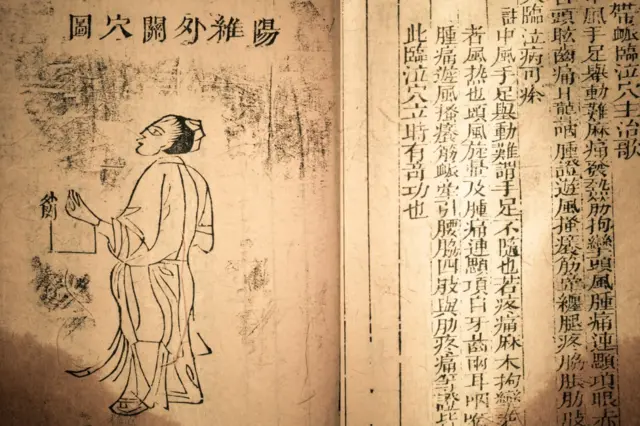 陽維外關穴圖
帶䘑臨泣穴主治歌
中風手足舉動難麻痛發熱筋拘攣頭風腫痛連顋項眼赤
頭眩齒痛耳聾咽腫證遊風搔癢筋牽纏腿疼脇脹肋肢
臨泣病可瘳
註中風手足舉動難謂手足不隨也若疼痛麻木拘攣
者風熱也頭風旋暈及腫痛連顋項目牙齒兩耳咽喉
腫痛遊風搔癢筋䘑牽引腰脇四肢與肋疼痛等證
此臨泣穴立時有奇功也